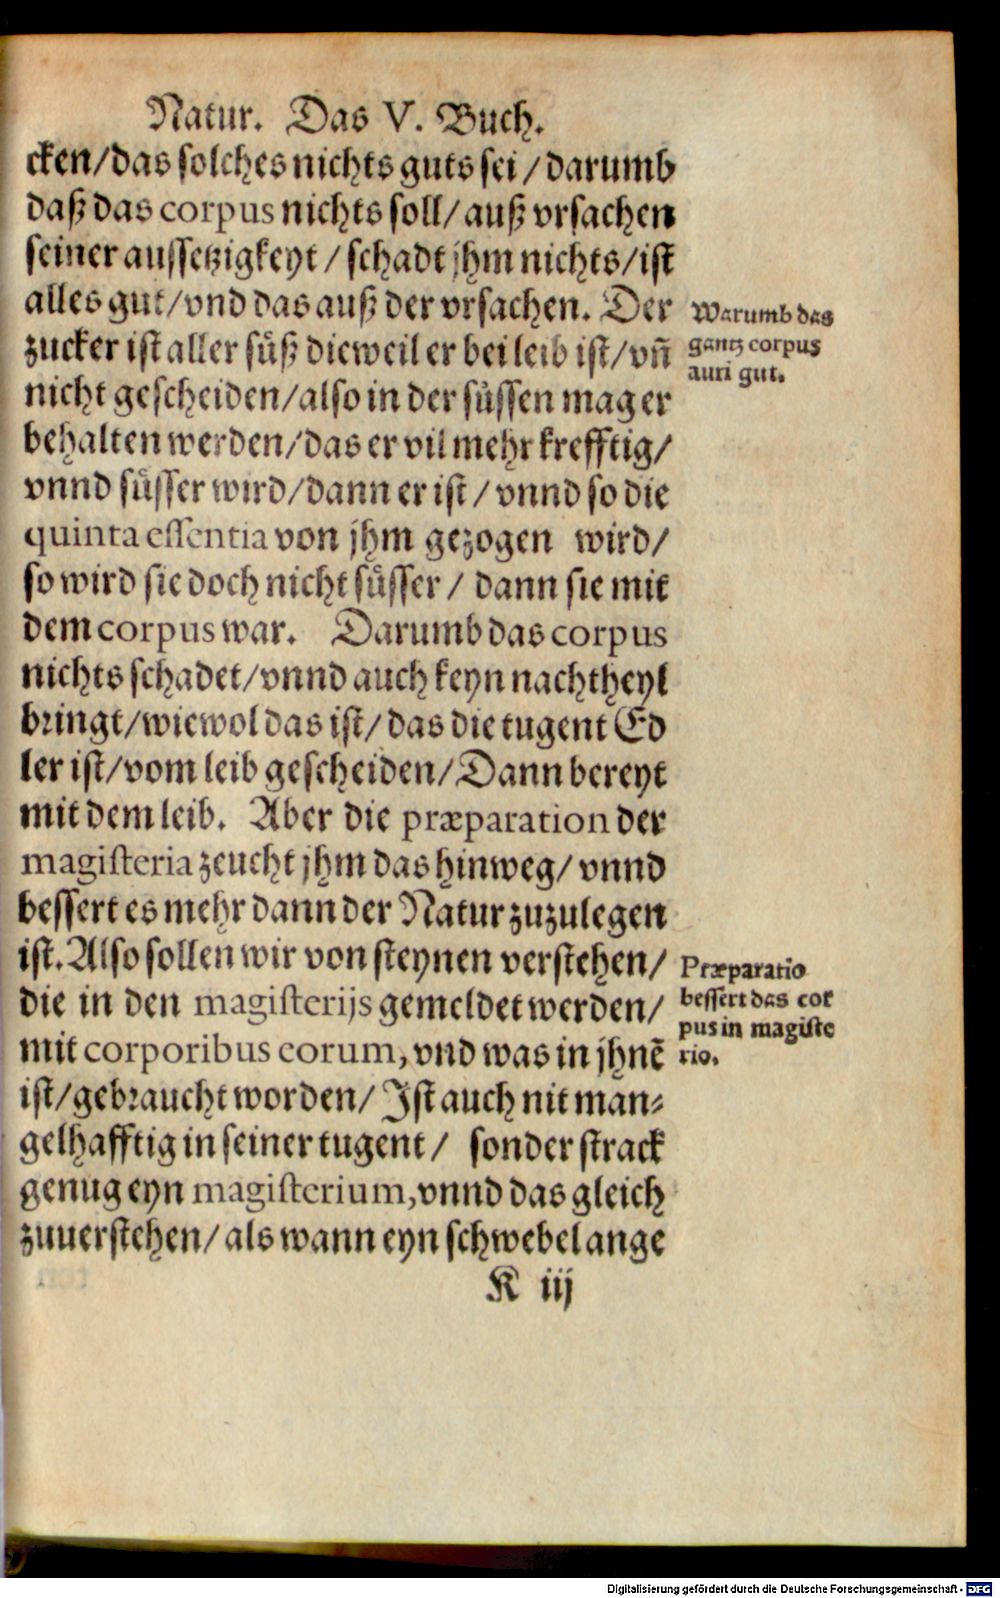 Natur. Das V. Buch.
cken/das solches nichts guts sei/darumb
daß das corpus nichts soll/auß vrsachen
seiner aussetzigkeyt/schadt jhm nichts/ist
alles gut/vnd das auß der vrsachen. Der
zucker ist aller süß dieweil er bei leib ist/vñ
nicht gescheiden/also in der süssen mag er
behalten werden/das er vil mehr krefftig/
vnnd süsser wird/dann er ist/vnnd so die
quinta essentia von jhm gezogen wird/
so wird sie doch nicht süsser/ dann sie mit
dem corpus war. Darumb das corpus
nichts schadet/vnnd auch keyn nachtheyl
bringt/wiewol das ist/das die tugent Ed
ler ist/vom leib gescheiden/Dann bereyt
mit dem leib. Aber die præparation der
magisteria zeucht jhm das hinweg/vnnd
bessert es mehr dann der Natur zuzulegen
ist. Also sollen wir von steynen verstehen/
die in den magisterijs gemeldet werden/
mit corporibus eorum, vnd was in jhnẽ
ist/gebraucht worden/Ist auch nit man-
gelhafftig in seiner tugent/ sonder strack
genug eyn magisterium, vnnd das gleich
zuuerstehen/als wann eyn schwebel ange
K iij
Warumb das
gantz corpus
auri gut.
Præparatio
bessert das cor
pus in magiste
rio.
Digitalisierung gefördert durch die Deutsche Forschungsgemeinschaft - DFG